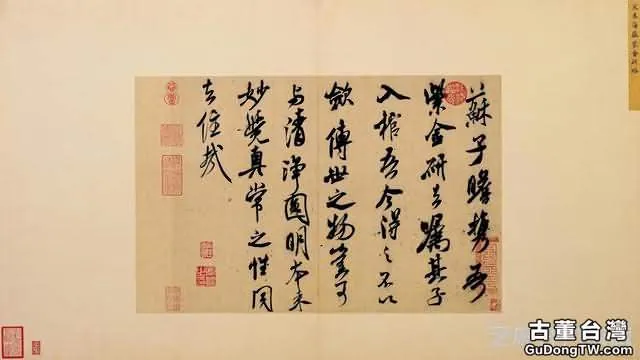 蘇子瞻携吾
紫金研去嘱其子
入棺吾今得之不以
斂傳世之物豈可
与清淨圓明本来
妙覺真常之性同
去住哉
古董台灣
GuDongTW.com